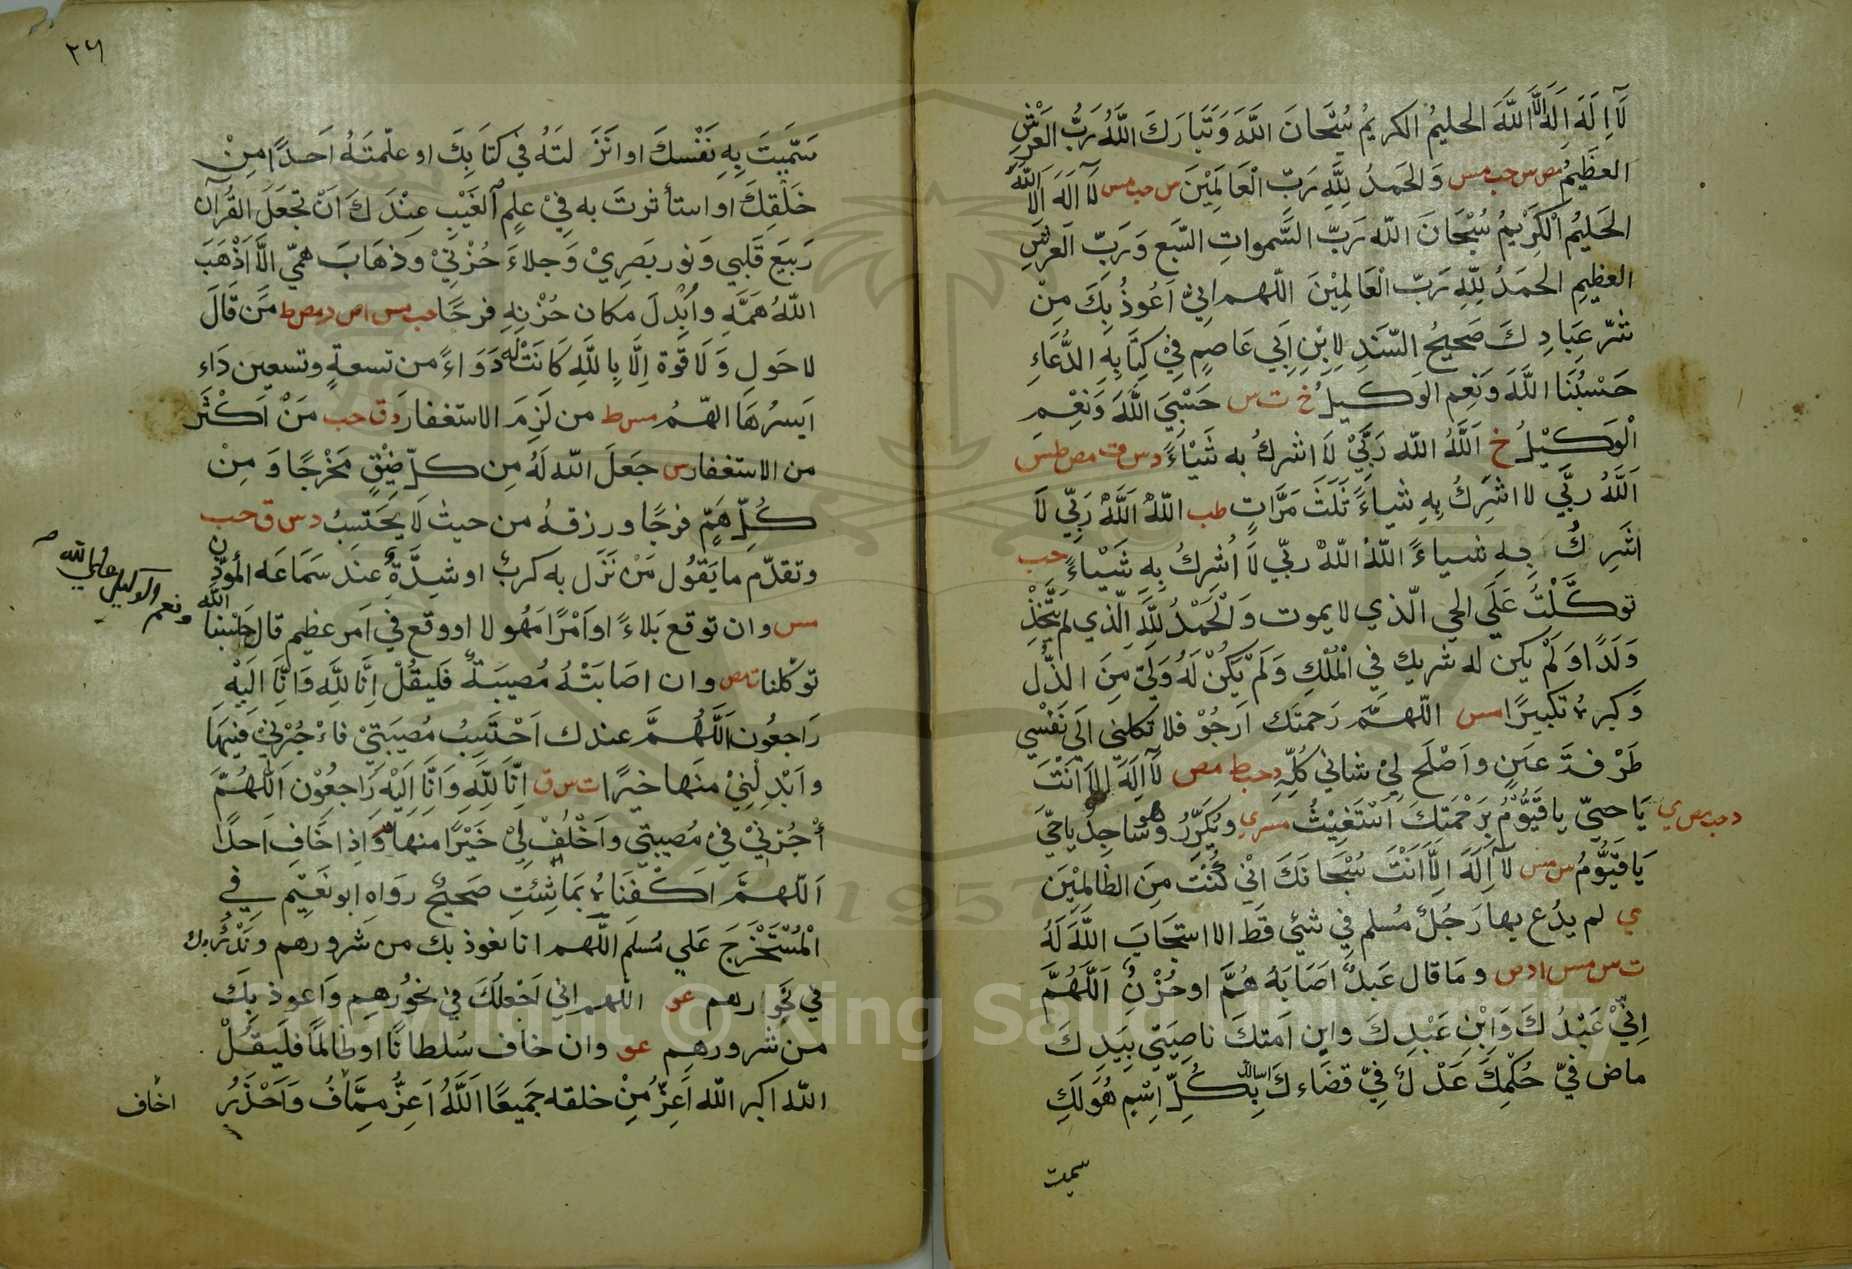 لَا اِلَهَ اِلَّا اللَّهَ الحليمُ الكريمُ سُبْحَانَ اللَّهَ وَتَبَارَكَ اللَّهُ رَبُّ العَرْشِ
العظيمُ مص س حب مس وَالحَمدُ لِلَّهِ رَبِّ الْعَالَمِيْنَ س حب مس لَا اِلَهَ اِلَّا اللَّهُ
الحَليمُ الْكَرِيْمُ سُبْحَانَ اللّه رَبِّ السَّمواتِ السَّبع وَرَبِّ العَرشِ
العظيمِ الحمَدُ لِلّهِ رَبِّ الْعَالَمِيْنَ اللّهم اِنِيْ اَعُوذُ بِكَ مِنْ
شَرّ عِبَادِكَ صَحيحُ السَّنَدِ لِابْنِ اَبِي عَاصِمٍ فِيْ كِتَابِهِ الدُّعَاءِ
حَسْبُنَا اللَّهَ وَنِعم الوَكيلُ خ ت س حَسْبِيَ اللَّهُ وَنِعْم
الْوَكِيْلُ خ اَللَّهُ اللّه رَبِّيْ لَا اشركُ به شَيْاءً د س ق مص طس
اَللَّهُ ربِّي لا اشْرِكُ بِهِ شياءً ثَلَثَ مَرَّاتٍ طب اللّهُ اَللَّهُ رَبِّي لَا
اشَرِكُ بِهِ شياءً اللّهُ اللّهُ ربّي لَا اُشرِكُ بِهِ شَيْاءً حب
توكَّلْتُ عَلَي الحي الّذي لا يموت وَالْحَمْدُ لِلَّهِ الَّذي لم يَتَّخِذْ
وَلَدًا وَلَمْ يكن له شريك في الْمُلْكِ وَلَمْ يَكُنْ لَهُ وَلِيّ مِنَ الذُّل
وَكبره تكبيرًا مس اللّهمَّ رَحمتَك اَرجُوْ فلا تكلني اِلَي نَفْسِي
طَرْفَةَ عَينٍ وَاَصْلح لِيْ شاني كُلِّهِ د حب ط مص لَا اِلَهَ اِلَّا اَنْتَ
د حب مص ي
يَا حيّ يا قَيُّوْمُ بِرَحْمَتِكَ اَسْتَغِيْثُ مس ي ويُكَرِّرُ وَهو ساجِدٌ يا حيَّ
يَا قَيُّوْمُ س مس لَا اِلَهَ اِلَّا اَنْتَ سُبْحَانَكَ اِنِّي كُنْتُ مِنَ الظالمِيْنَ
ي لم يدُع بها رَجُلٌ مُسلم في شئي قَط الا استجابَ اللَّهَ لَهُ
ت س مس ا ر ص ومَا قال عَبدٌ اَصَابَهُ هُمَّ او حُزْنٌ اَللَّهُمَّ
اِنِّيْ عَبْدُكَ وَابْنِ عَبْدِكَ وابن اَمتكَ ناصِيَتي بِيَدِكَ
ماض فيّ حُكْمِكَ عَدْلٌ فِيّ قضَاءكَ اسالك بِكُلِّ اِسْم هُوَ لَكِ
سميت
٣٦
سَمَّيتَ بِهِ نَفْسكَ او انْزَلتَهُ في كتَابِكَ او علّمتَهُ اَحدًا مِنْ
خَلْقِكَ او استأثرتَ به فِيْ عِلمِ الغَيْبِ عِنْدَكَ اَنْ تجعَلَ القُرآن
رَبيعَ قَلْبي وَنور بَصَرِيْ وَجلاءَ حُزْنِيْ وذهَابَ هَمّي اِلَّا اَذْهَبَ
اللّهُ هَمَّه واُبْدِلَ مكان حُزْنِهِ فرحًا حب مس ا ص ر مص ط مَن قَالَ
لا حَولَ وَلَا قوَّة اِلَّا بِاللَّهِ كَانَتْ لَهُ دَوَاءً من تسعةٍ وتسعين دَاءِ
اَيسرُهَا الهّمُ مس ط من لَزِمَ الاستغفارَ د ق حب مَنْ اَكْثَر
من الاستغفار س جَعلَ اللّه لَهُ مِن كلّ ضِيْقٍ مَخْرَجًا وَمِنْ
كُلِّ هَمّ فرجًا ورزقهُ من حيثُ لَا يحْتَسِبُ د س ق حب
وتقدّم ما يَقُول مَنْ نَزَل به كربٌ او شِدَّةٌ عندَ سَمَاعَه المُؤذّن
مس وان توقع بَلاءً او اَمْرًا مَهُولا او وقع في اَمر عظيم قال حَسْبُنا اللّه
ونعم الوكيل علي الله
توكّلنا ت مص وان اصَابَتْهُ مُصيبَةٌ فَليقُلْ اِنَّا لِلَّهِ وَاِنَّا اِلَيْهِ
رَاجعُون اَللَّهُمَّ عندك اَحْتَسِبُ مُصِيبَتِيْ فاءجُرْنِيْ فيهَا
وابْدِلْنِيْ منهَا خيرًا ت س ق اِنّا لِلَّهِ وَاِنَّا اِلَيْهِ رَاجعُوْن اَللَّهُمَّ
أْجُرْنِيْ فِيْ مُصيبتي واَخْلُفْ لِيْ خَيْرًا منها م وَاِذا خَافَ اَحدًا
اَللّهمَّ اكْفِنَاهُ بِمَا شِئتَ صَحيحٌ روَاهُ ابو نعَيْم في
الْمُسْتَخْرَجَ عَلي مُسْلم اللَّهم انا نعوذ بك من شرورهم وَنَدْرَؤُ بك
في نحُورهم عو اللّهم اِني اَجْعلُكَ فِيْ نحُوْرهِم وَاَعوذ بِكَ
من شُرورهِمِ عو وان خاف سُلطانًا او ظالمًا فَليَقُلْ
اللّه اكبر اللّه اَعزُّ مِنْ خلقه جَمِيعًا اَللَّهُ اَعزُّ مِمَّا اَخَافُ وَاَحْذَرُ
اخاف